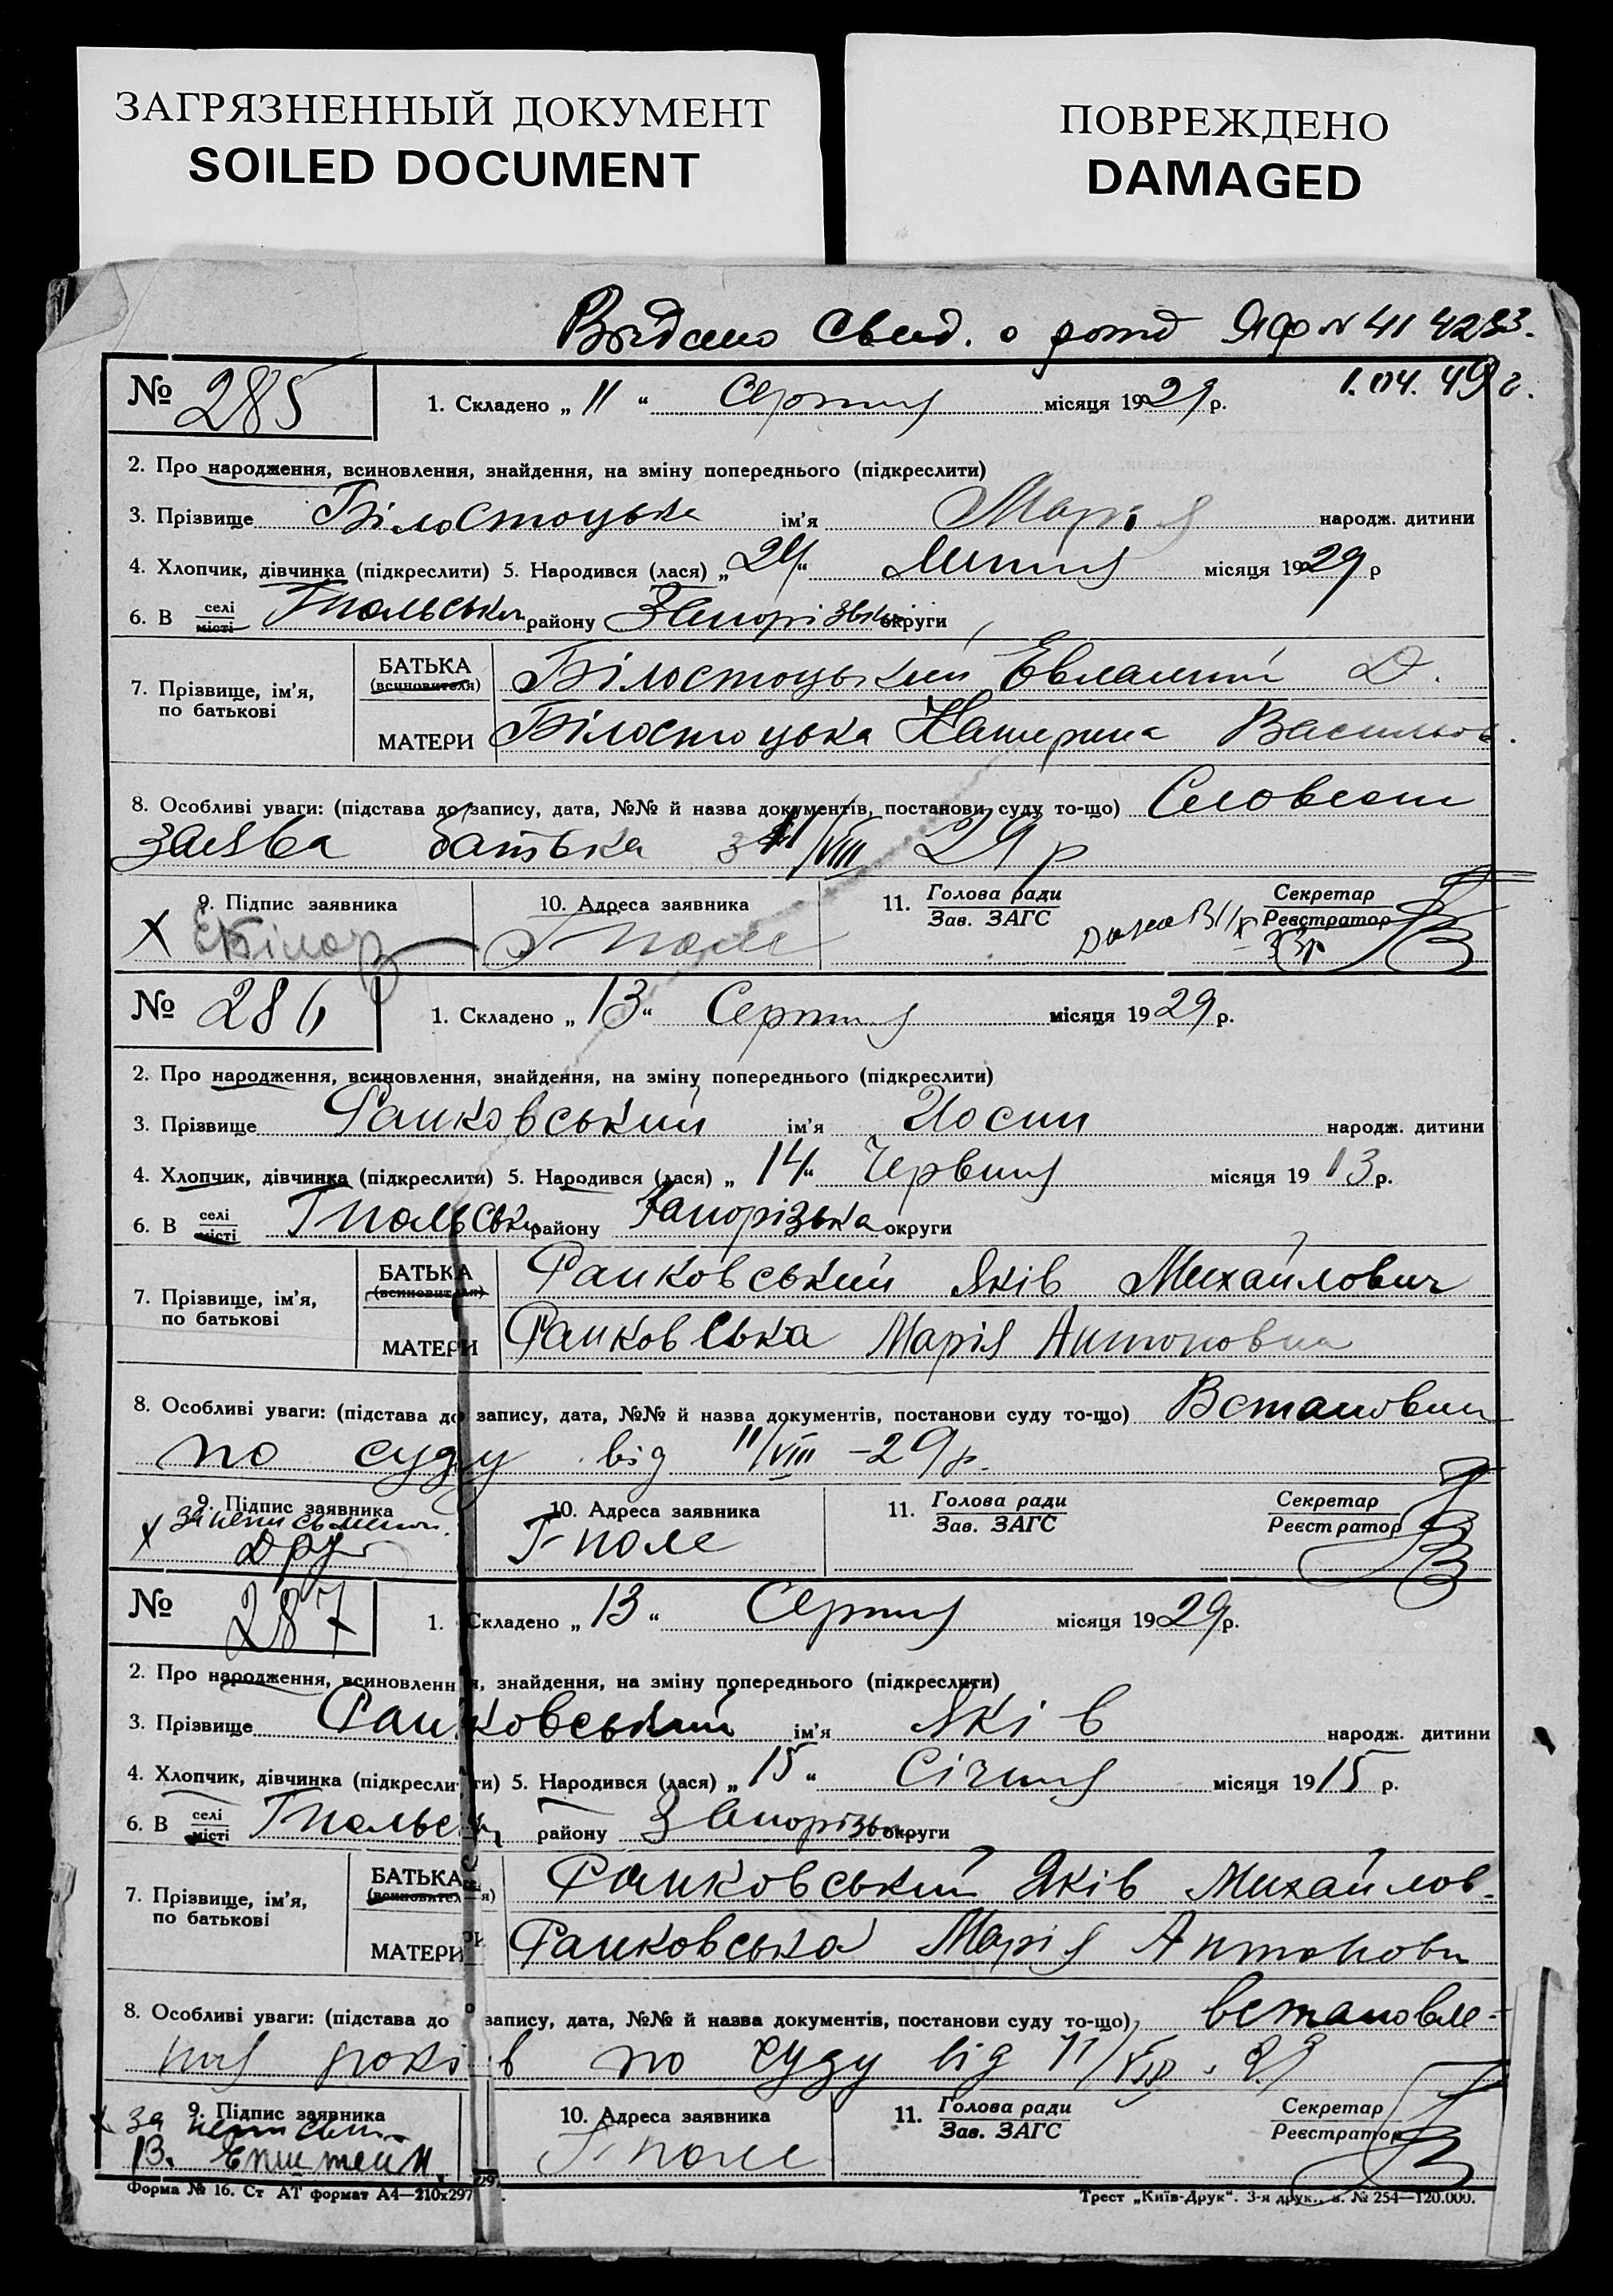 ЗАГРЯЗНЕННЫЙ ДОКУМЕНТ
SOILED DOCUMENT
ПОВРЕЖДЕНО
DAMAGED
Выдано Свид. о рожд ЯФ № 41 4283.
1.04.49 г.
№ 285
1. Складено „ 11 “ Серпня місяця 1929 р.
2. Про народження, всиновлення, знайдення, на зміну попереднього (підкреслити)
3. Прізвище Білостоцька ім'я Марія народж. дитини
4. Хлопчик, дівчинка (підкреслити) 5. Народився (лася) „ 24 “ Липня місяця 1929 р
6. В селі місті Гпольськ району Запорізьк округи
7. Прізвище, ім'я, по батькові
БАТЬКА (всиновителя) Білостоцький Евлампий Д.
МАТЕРИ Білостоцька Катерина Васильов.
8. Особливі уваги: (підстава до запису, дата, №№ й назва документів, постанови суду то-що) Словесн
заява батька з 11/VIII 29 р
9. Підпис заявника
10. Адреса заявника
11. Голова ради Зав. ЗАГС
Секретар Реєстратор
Х ЕБілос
Г поле
№ 286
1. Складено „ 13 “ Серпня місяця 1929 р.
2. Про народження, всиновлення, знайдення, на зміну попереднього (підкреслити)
3. Прізвище Ранковський ім'я Иосип народж. дитини
4. Хлопчик, дівчинка (підкреслити) 5. Народився (лася) „ 14 “ Червня місяця 1913 р.
6. В селі місті Гпольськ району Запорізька округи
7. Прізвище, ім'я, по батькові
БАТЬКА (всиновителя) Ранковський Яків Михайлович
МАТЕРИ Ранковська Марія Антоновна
8. Особливі уваги: (підстава до запису, дата, №№ й назва документів, постанови суду то-що) Встановлен
по суду від 11/VIII - 29 р.
9. Підпис заявника
10. Адреса заявника
11. Голова ради Зав. ЗАГС
Секретар Реєстратор
Х за неписьмен.
Г-поле
№ 287
1. Складено „ 13 “ Серпня місяця 1929 р.
2. Про народження, всиновлення, знайдення, на зміну попереднього (підкреслити)
3. Прізвище Ранковський ім'я Яків народж. дитини
4. Хлопчик, дівчинка (підкреслити) 5. Народився (лася) „ 15 “ Січня місяця 1915 р.
6. В селі місті Гпольськ району Запорізьк округи
7. Прізвище, ім'я, по батькові
БАТЬКА (всиновителя) Ранковський Яків Михайлов.
МАТЕРИ Ранковська Марія Антоновн
8. Особливі уваги: (підстава до запису, дата, №№ й назва документів, постанови суду то-що) встановле-
ня років по суду від 11/VIII - 29
9. Підпис заявника
10. Адреса заявника
11. Голова ради Зав. ЗАГС
Секретар Реєстратор
х за неписьм.
В. Епштейн.
Г поле
Форма № 16. Ст АТ формат А4—210х297
Трест „Київ-Друк“. 3-я друк., з. № 254—120.000.